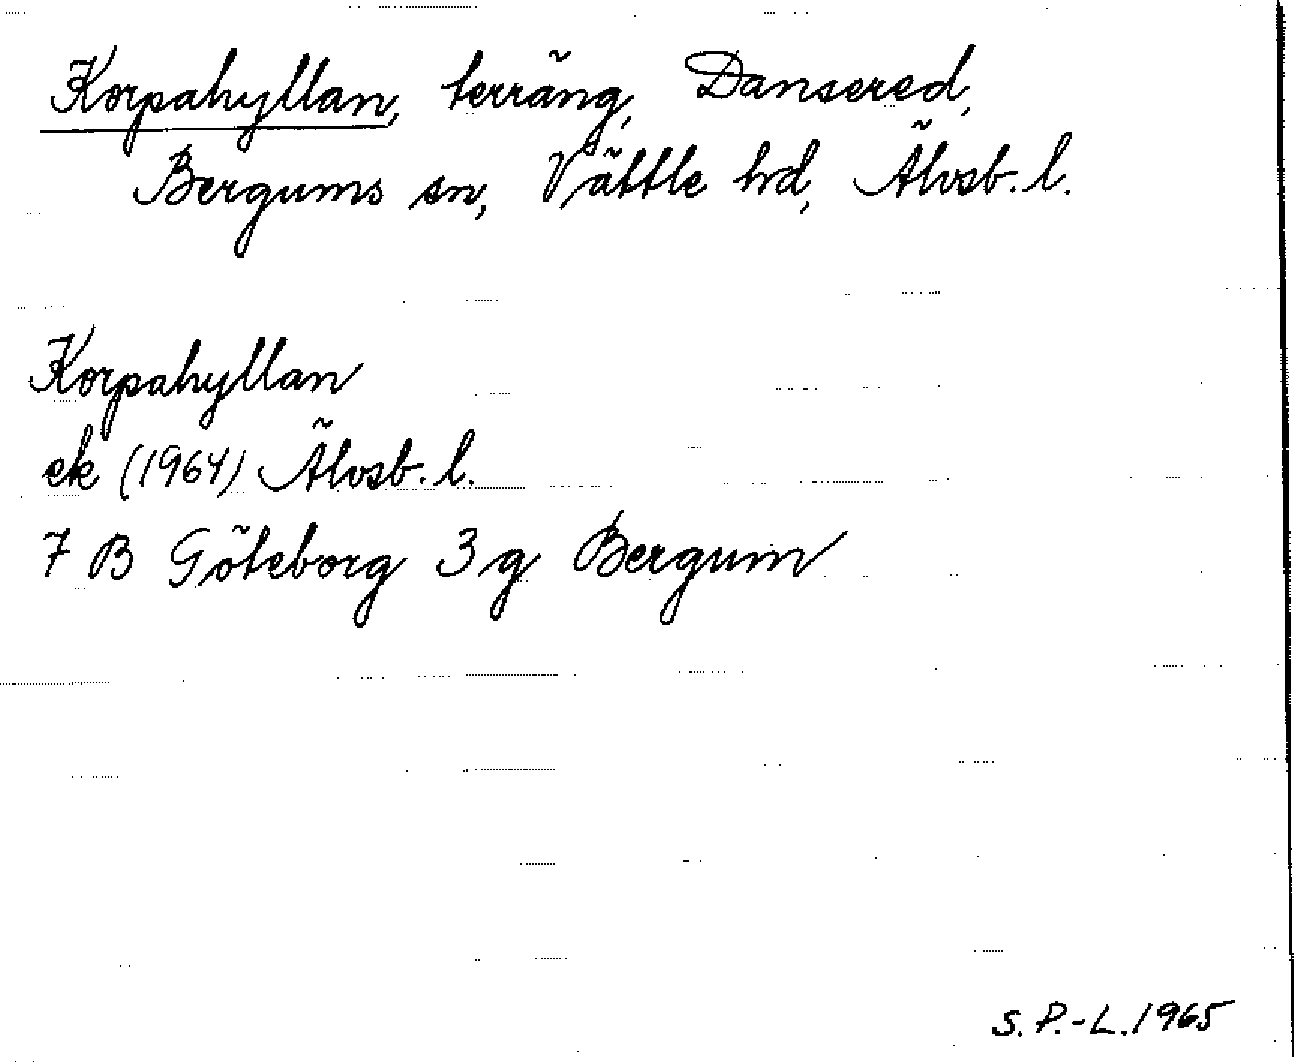 Korpahyllan, terräng, Dansered,
Bergums sn, Vättle hd, Älvsb. l.
Korpahyllan
ek (1964) Älvsb. l.
7 B Göteborg 3 g Bergum
S. P.-L. 1965